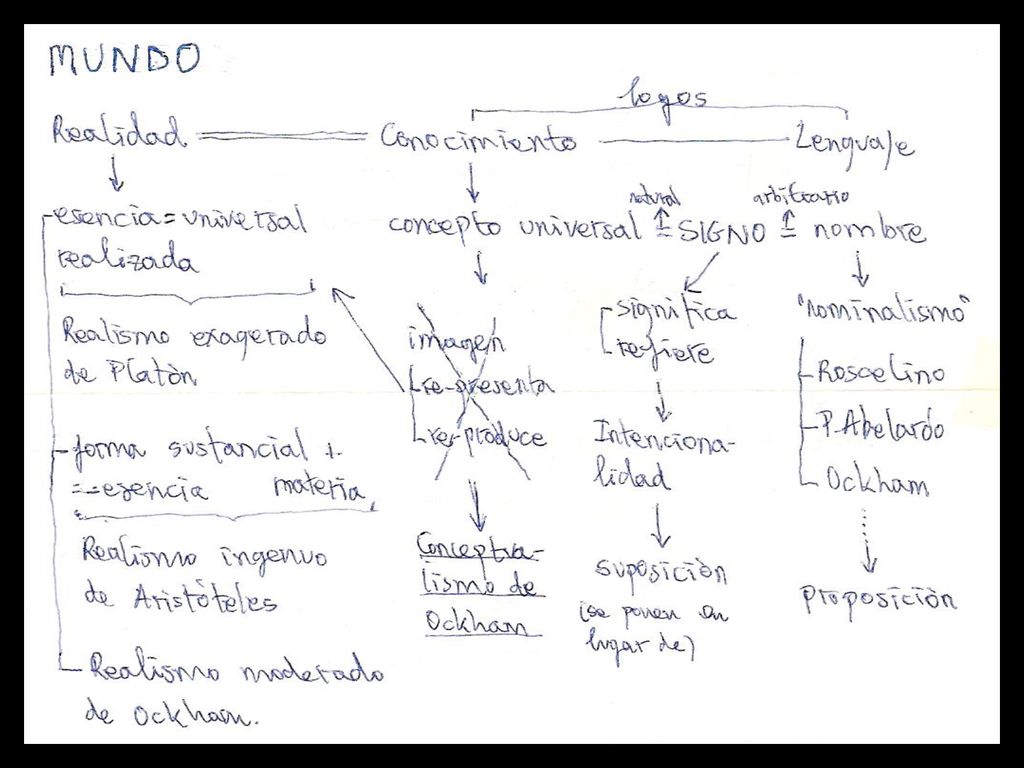 MUNDO
logos
Realidad Conocimiento Lenguaje
natural arbitrario
esencia = universal realizada
concepto universal = SIGNO = nombre
Realismo exagerado
de Platòn
forma sustancial +
= esencia materia
Realismo ingenuo
de Aristòteles
Realismo moderado
de Ockham.
imagen
re-presenta
re-produce
Conceptua-
lismo de
Ockham
significa
refiere
Intenciona-
lidad
suposiciòn
(se ponen en
lugar de)
"nominalismo"
Roscelino
P. Abelardo
Ockham
proposiciòn